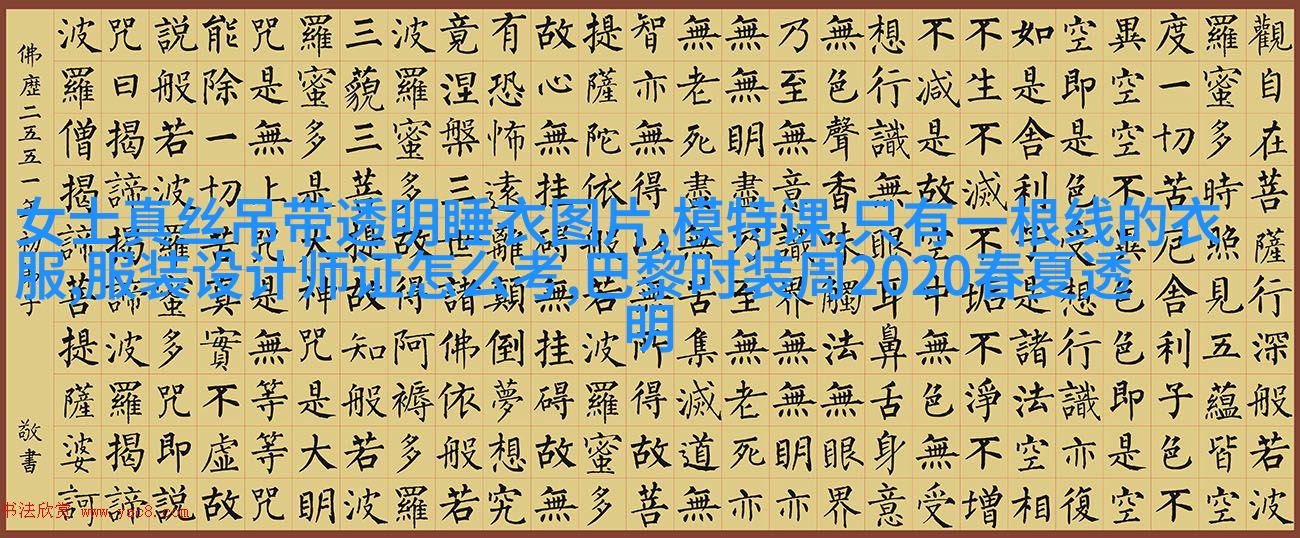 觀自在菩薩行深般若波
羅蜜多時照見五蘊皆空
度一切苦厄舍利子色不
異空空不異色色即是空
空即是色受想行識亦復
如是舍利子是諸法空相
不生不滅不垢不淨不增
不減是故空中無色無受
想行識無眼耳鼻舌身意
無色聲香味觸法無眼界
乃至無意識界無無明亦
無無明盡乃至無老死亦
無老死盡無苦集滅道無
智亦無得以無所得故菩
提薩陀依般若波羅蜜多
故心無挂礙無挂礙故無
有恐怖遠離顛倒夢想究
竟涅槃三世諸佛依般若
波羅蜜多故得阿褥多羅
三藐三菩提故知般若波
羅蜜多是大神咒是大明
咒是無上咒是無等等咒
能除一切苦真實不虛故
説般若波羅蜜多咒即説
咒曰揭諦揭諦波羅揭諦
波羅僧揭諦菩提薩婆訶
佛歷二五五一年 子 敬書
女士真丝吊带透明睡衣图片,模特课,只有一根线的衣
服,服装设计师证怎么考,巴黎时装周2020春夏透
明
书法欣赏 www.yac8.com